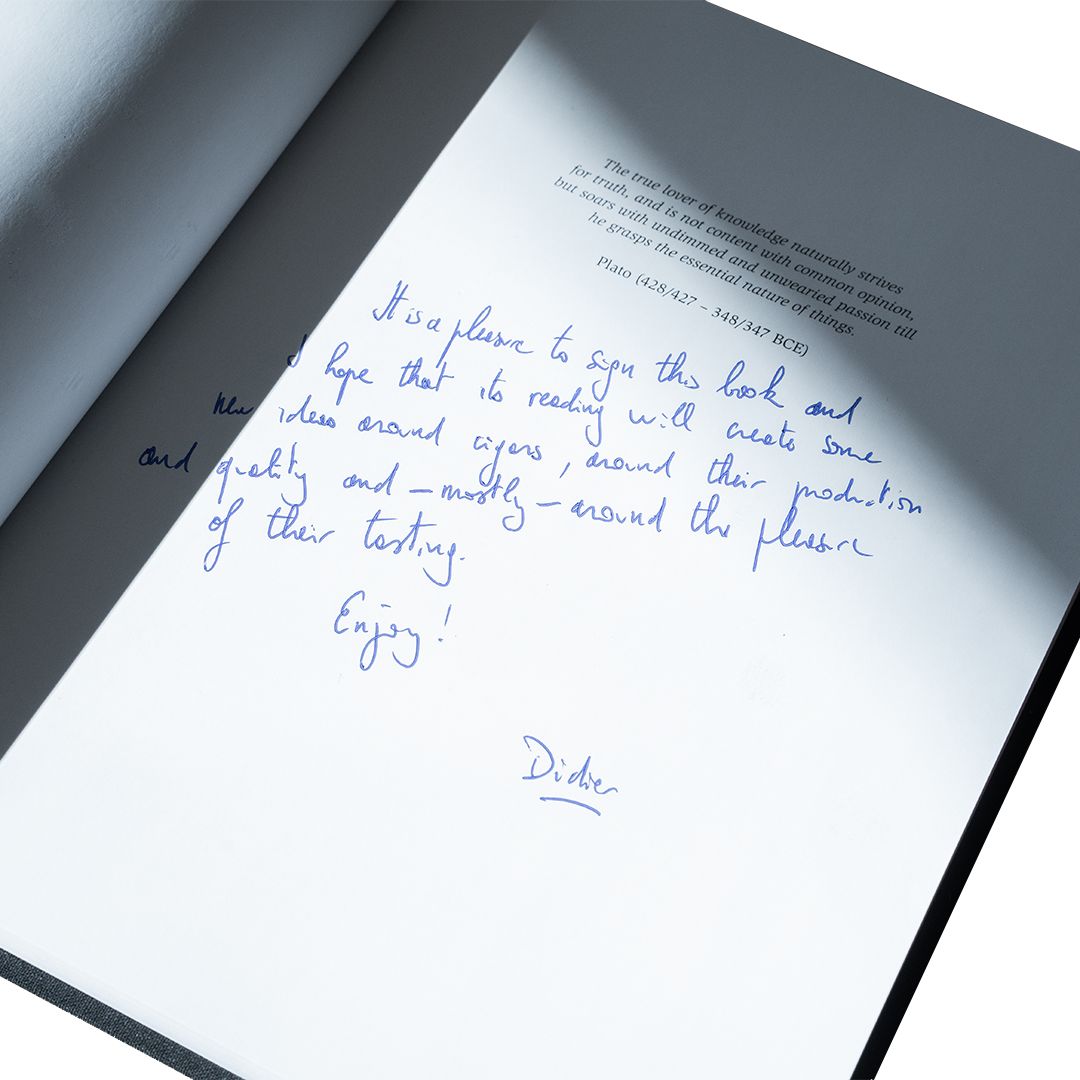 The true lover of knowledge naturally strives
for truth, and is not content with common opinion,
but soars with undimmed and unwearied passion till
he grasps the essential nature of things.
Plato (428/427 – 348/347 BCE)
It is a pleasure to sign this book and
I hope that its reading will create some
new ideas around cigars, around their production
and quality and – mostly – around the pleasure
of their tasting.
Enjoy!
Didier